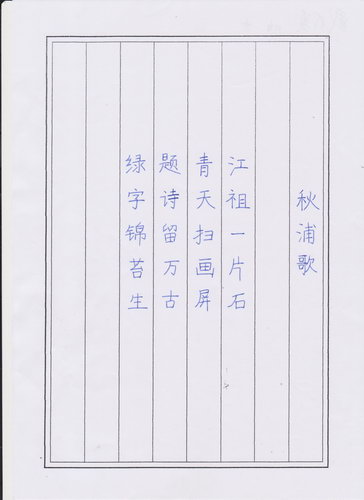 秋浦歌
江祖一片石
青天扫画屏
题诗留万古
绿字锦苔生